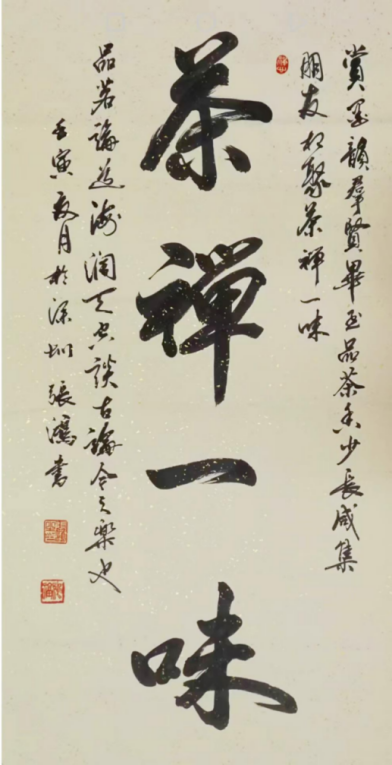 賞墨韻羣賢畢至品茶香少長咸集
朋友相聚茶禅一味
茶禪一味
品茗論道海润天空談古論今之樂也
壬寅夏月於深圳張鴻書